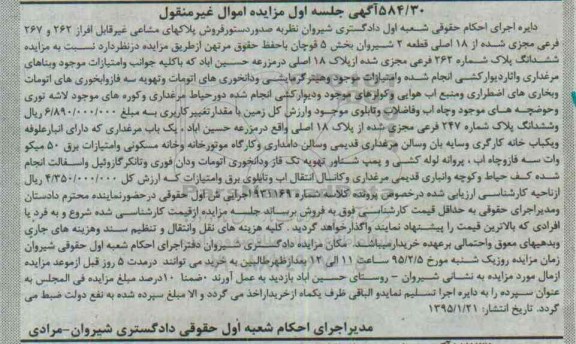 ۵۸۴/۳۰آگهی جلسه اول مزایده اموال غیرمنقول
دایره اجرای احکام حقوقی شعبه اول دادگستری شیروان نظربه صدوردستورفروش پلاکهای مشاعی غیرقابل افراز ۲۶۲ و ۲۶۷
فرعی مجزی شده از ۱۸ اصلی قطعه ۲ شیروان بخش ۵ قوچان باحفظ حقوق مرتهن ازطریق مزایده درنظردارد نسبت به مزایده
ششدانگ پلاک شماره ۲۶۲ فرعی مجزی شده ازپلاک ۱۸ اصلی درمزرعه حسین آباد که باکلیه جوانب وامتیازات موجود وبناهای
مرغداری واناردیوارکشی انجام شده وامتیازات موجود وهیترگرمایشی ودانخوری های اتومات وتهویه سه فازوابخوری های اتومات
وبخاری های اضطراری ومنبع اب هوایی وکولرهای موجود ودیوارکشی انجام شده دورحیاط مرغداری وکوره های موجود لاشه توری
وحوضچه های موجود وچاه اب وفاضلاب وتابلوی موجود وارزش کل زمین با مقدارتغییرکاربری به مبلغ ۶/۸۹۰/۰۰۰/۰۰۰ ریال
وششدانگ پلاک شماره ۲۴۷ فرعی مجزی شده از پلاک ۱۸ اصلی واقع درمزرعه حسین آباد ، یک باب مرغداری که دارای انبارعلوفه
ویکباب خانه کارگری وسایه بان وسالن مرغداری قدیمی وسالن دامداری وکارگاه موتورخانه وخانه مسکونی وامتیازات برق ۵۰ میکو
وات سه فازوچاه اب ، پروانه لوله کشی و پمپ شناور تهویه تک فاز ودانخوری اتومات ودان فوری وتانکرگازوئیل واسفالت انجام
شده کف حیاط وکوچه وانباری قدیمی مرغداری وکانال انتقال اب وتابلوی برق وامتیازات که ارزش کل ۴/۳۵۰/۰۰۰/۰۰۰ ریال
ازناحیه کارشناسی ارزیابی شده درخصوص پرونده کلاسه شماره ۹۳۱۱۶۹اجرایی ش اول حقوقی درحضورنماینده محترم دادستان
ومدیراجرای حقوقی به حداقل قیمت کارشناسی فوق به فروش برساند جلسه مزایده ازقیمت کارشناسی شده شروع و به فرد یا
افرادی که بالاترین قیمت را پیشنهاد نمایند واگذارخواهد گردید . کلیه هزینه های نقل وانتقال و تنظیم سند وهزینه های جاری
وبدهیهای معوق واحتمالی برعهده خریدارمیباشد . مکان مزایده دادگستری شیروان دفتراجرای احکام شعبه اول حقوقی شیروان
زمان مزایده روزیک شنبه مورخ ۹۵/۲/۵ ساعت ۱۱ الی ۱۲ بعدازظهرطالبین به خرید می توانند درمدت ۵ روز قبل ازموعد مزایده
ازمال مورد مزایده به نشانی شیروان – روستای حسین آباد بازدید به عمل آورند .ضمنا ۱۰درصد مبلغ مزایده فی المجلس به
عنوان سپرده را به دایره اجرا تسلیم نمایدو الباقی ظرف یکماه ازخریداراخذ می گردد و الا مبلغ سپرده شده به نفع دولت ضبط می
گردد. تاریخ انتشار: ۱۳۹۵/۱/۲۱
مدیراجرای احکام شعبه اول حقوقی دادگستری شیروان-مرادی